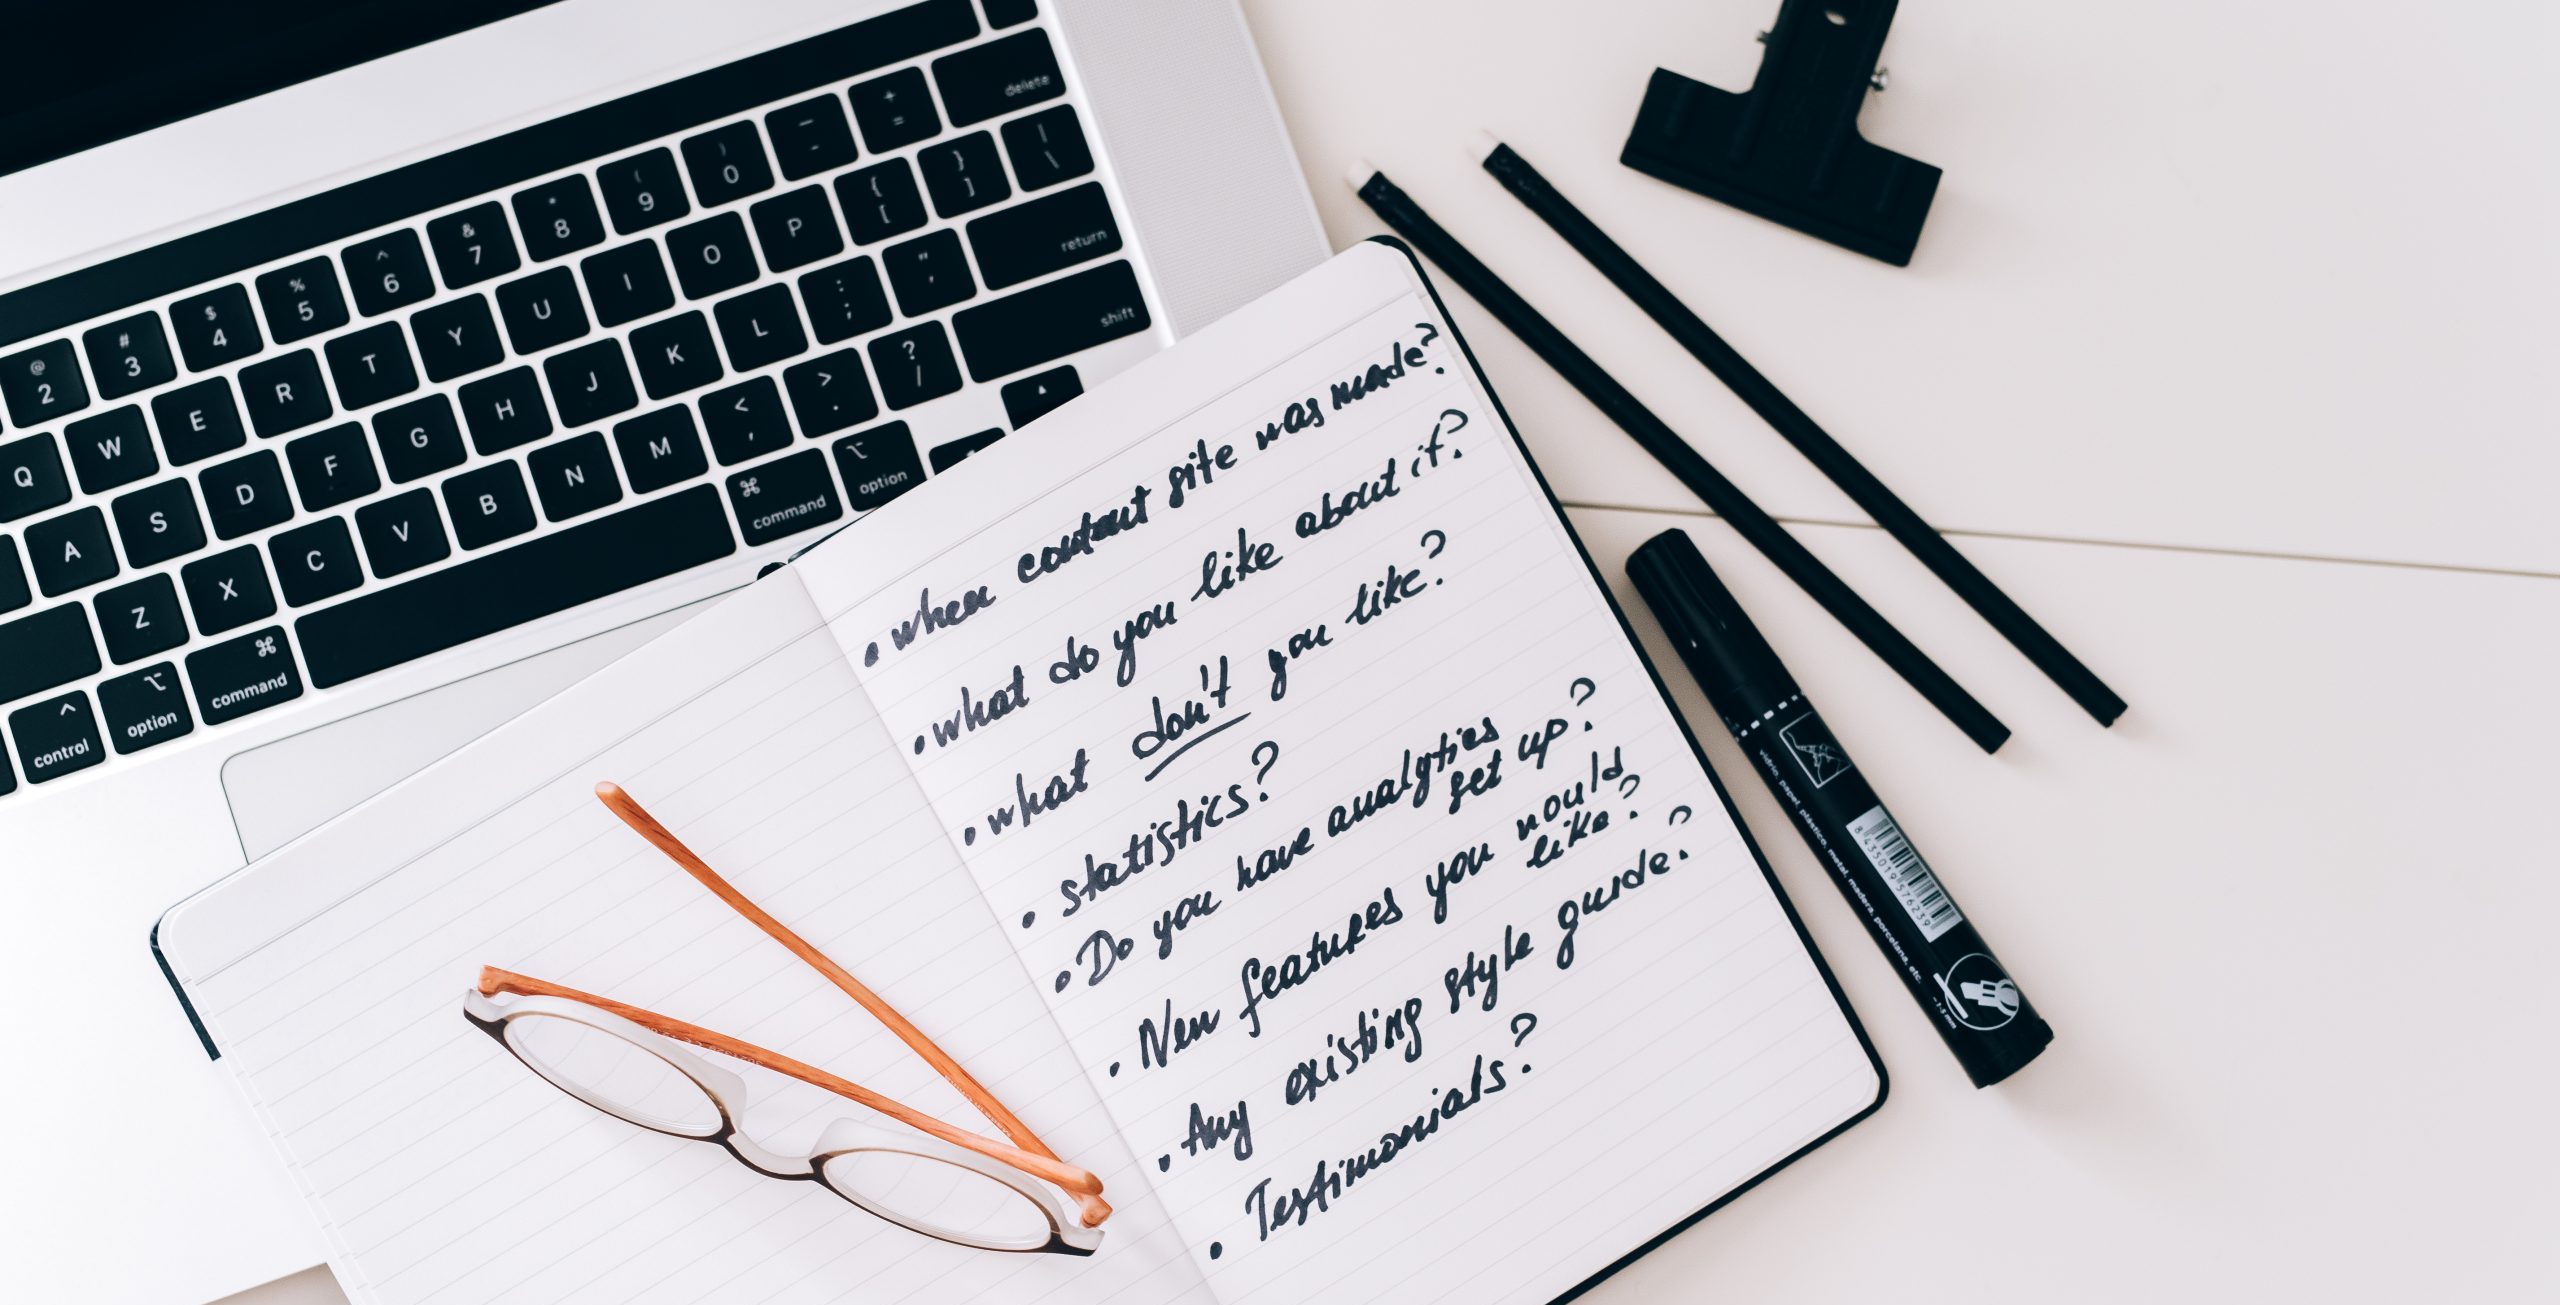 delete
@ # $ % ^ & * ( ) — + 
2 3 4 5 6 7 8 9 0 - =
Q W E R T Y U I O P { [ } ] | \
A S D F G H J K L : ; " ' return
Z X C V B N M < , > . ? / shift
control option command command option
• when content site was made?
• what do you like about it?
• what don't you like?
• statistics?
• Do you have analytics
set up?
• New features you would
like?
• Any existing style guide?
• Testimonials?
vidrio, papel, plástico, metal, madera, porcelana, etc.
8 435019 576239